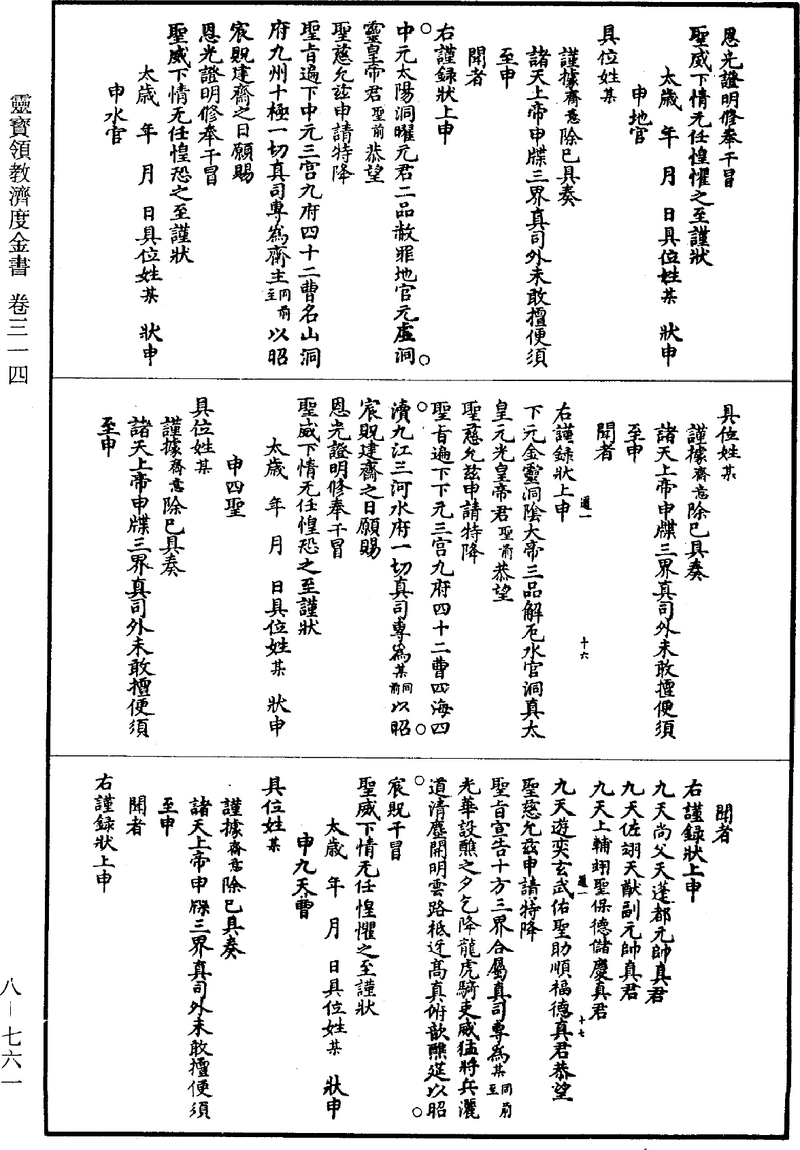 恩光證明修奉干冒
聖威下情无任惶懼之至謹狀
太歲 年 月 日具位姓某 狀申
申地官
具位姓某
謹據齋意除已具奏
諸天上帝申牒三界真司外未敢擅便須
至申
聞者
右謹錄狀上申
中元太陽洞曜元君二品赦罪地官元虛洞
靈皇帝君聖前恭望
聖慈允茲申請特降
聖旨遍下中元三宮九府四十二曹名山洞
府九州十極一切真司專為齋主同前至以昭
宸貺建齋之日願賜
恩光證明修奉干冒
聖威下情无任惶恐之至謹狀
太歲 年 月 日具位姓某 狀申
申水官
具位姓某
謹據齋意除已具奏
諸天上帝申牒三界真司外未敢擅便須
至申
聞者
右謹錄狀上申
下元金靈洞陰大帝三品解厄水官洞真太
皇元光皇帝君聖前恭望
聖慈允茲申請特降
聖旨遍下下元三宮九府四十二曹四海四
瀆九江三河水府一切真司專為某同前以昭
宸貺建齋之日願賜
恩光證明修奉干冒
聖威下情无任惶恐之至謹狀
太歲 年 月 日具位姓某 狀申
申四聖
具位姓某
謹據齋意除已具奏
諸天上帝申牒三界真司外未敢擅便須
至申
聞者
右謹錄狀上申
九天尚父天蓬都元帥真君
九天佐翊天猷副元帥真君
九天上輔翊聖保德儲慶真君
九天遊奕玄武佑聖助順福德真君恭望
聖慈允茲申請特降
聖旨宣告十方三界合屬真司專為某同前至
光華設醮之夕乞降龍虎騎吏威猛將兵灑
道清塵開明雲路祗迓高真俯歆醮筵以昭
宸貺干冒
聖威下情无任惶懼之至謹狀
太歲 年 月 日具位姓某 狀申
申九天曹
具位姓某
謹據齋意除已具奏
諸天上帝申牒三界真司外未敢擅便須
至申
聞者
右謹錄狀上申
道一
十六
道一
十七
靈寶領教濟度金書 卷三一四
八－七六一